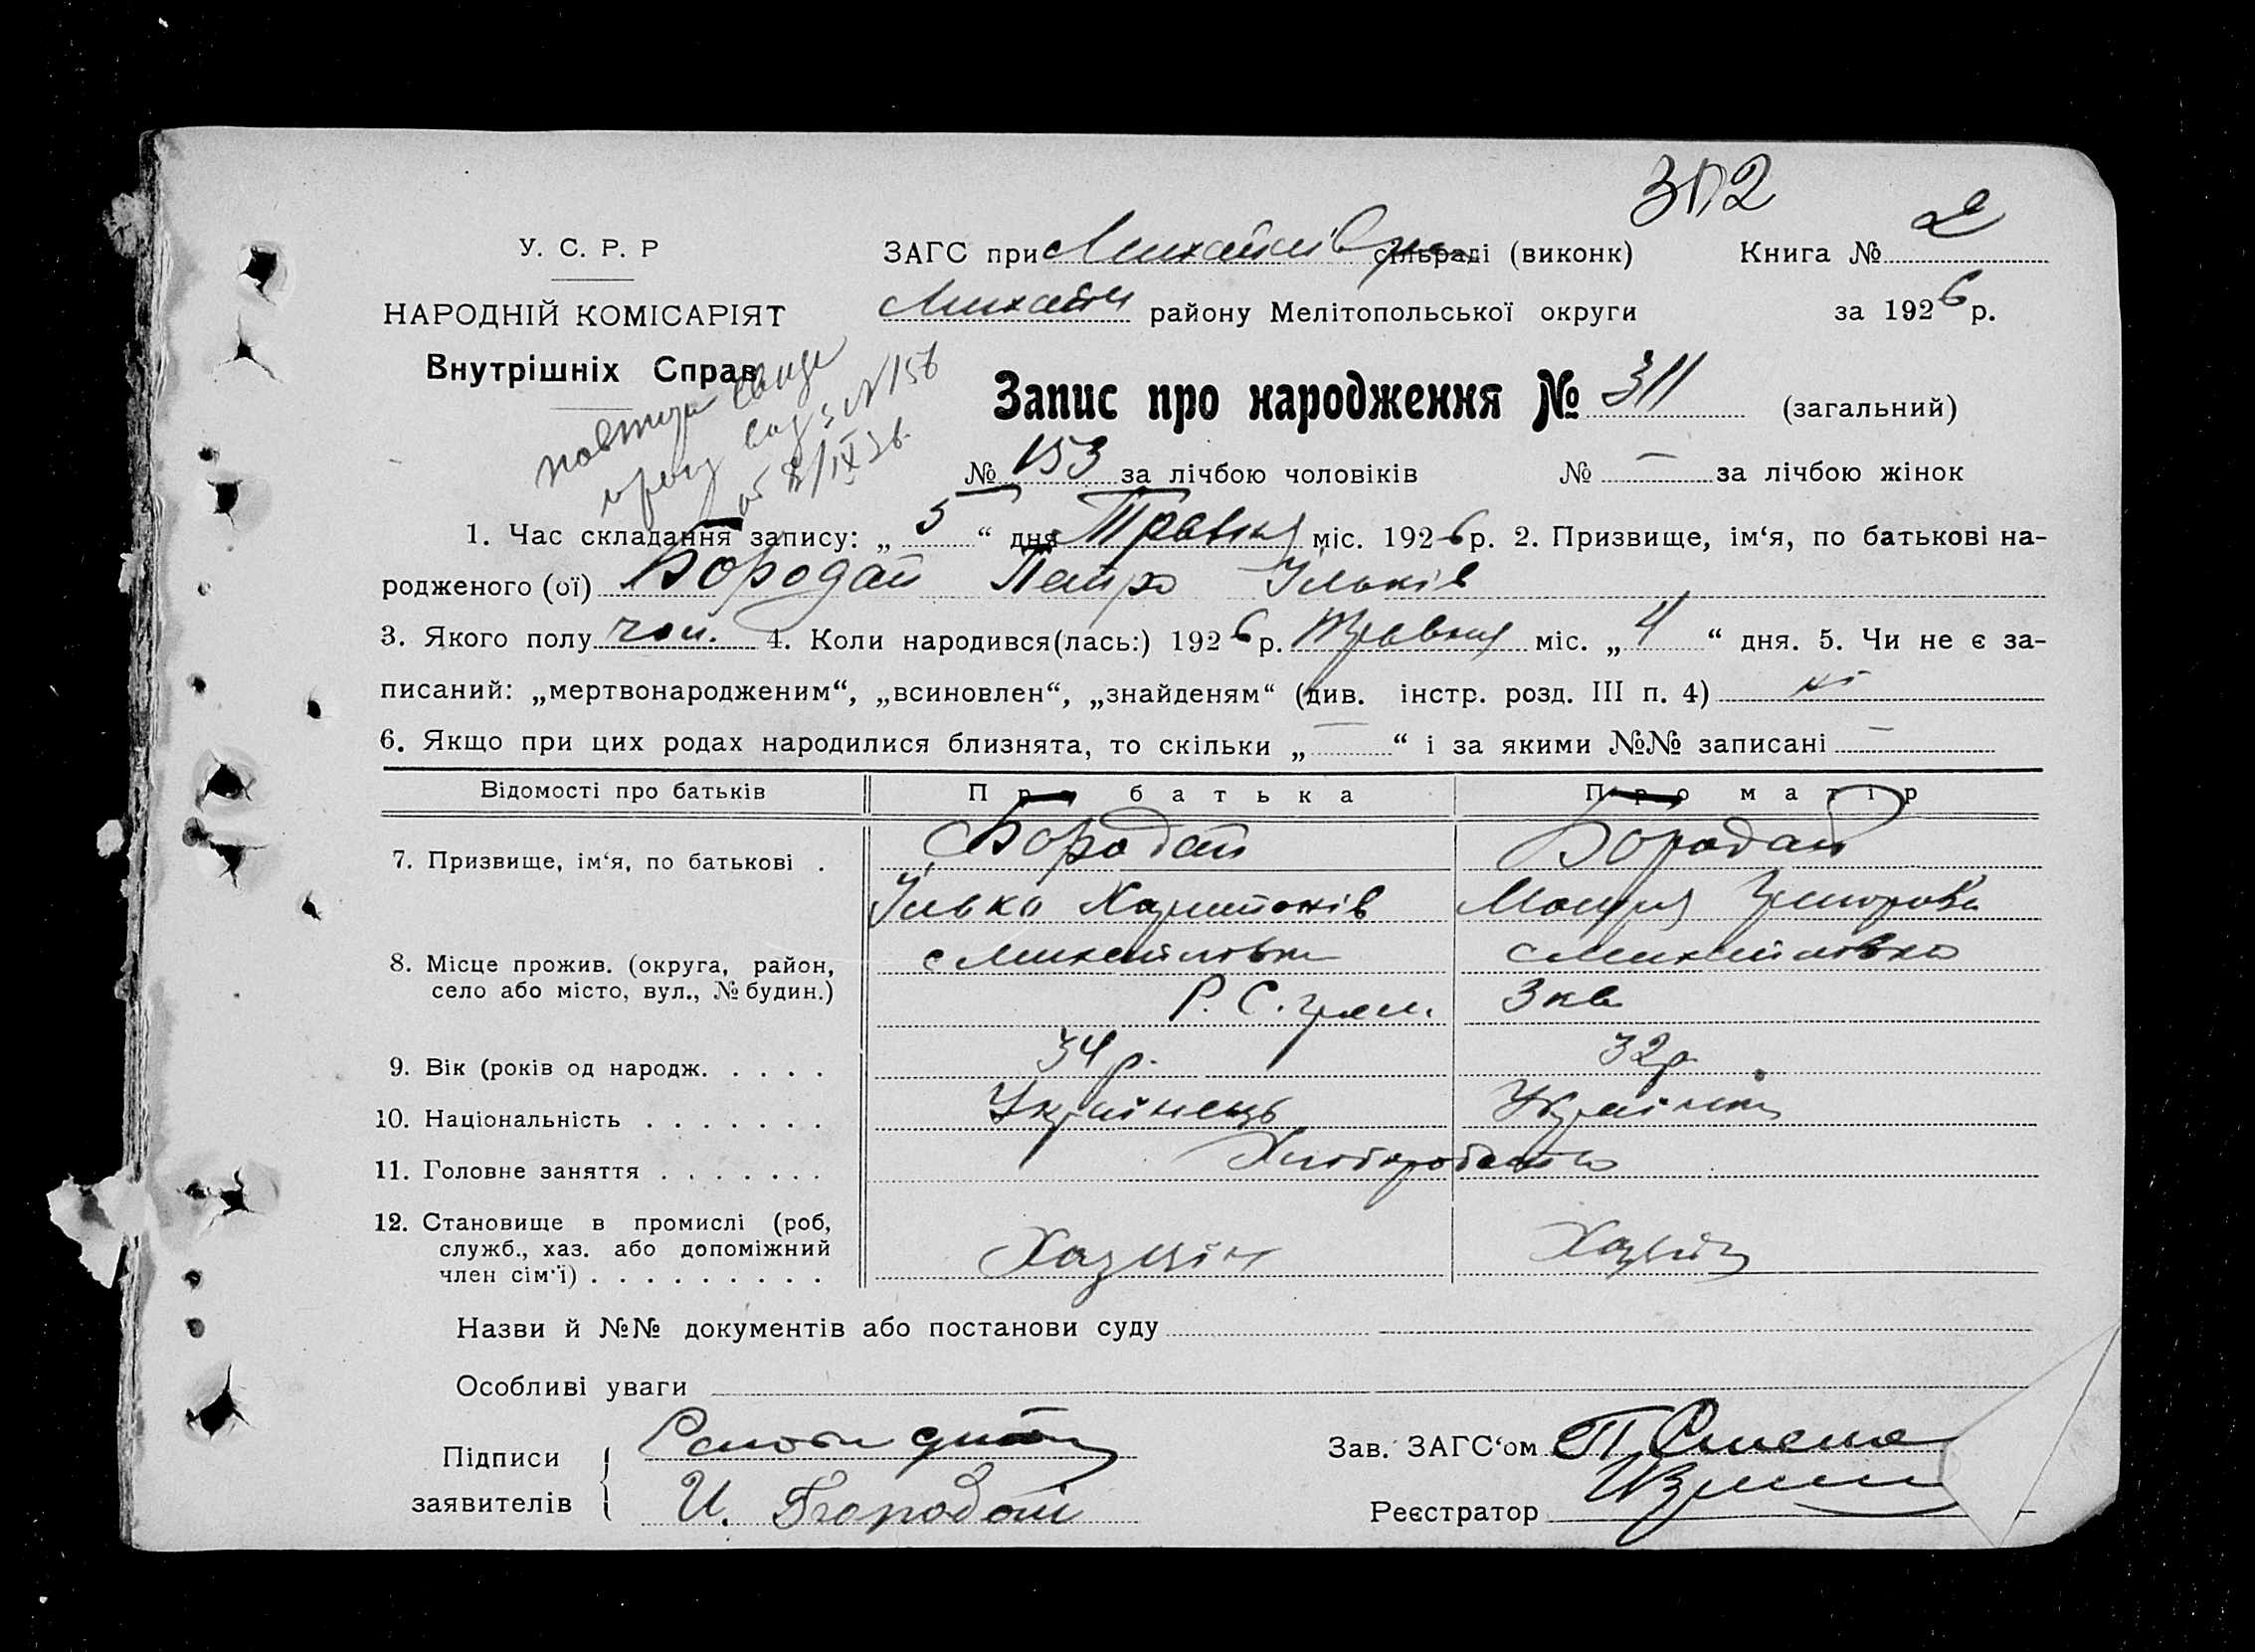 302
У. С. Р. Р
ЗАГС при Михайлів сільраді (виконк) Книга № 2
НАРОДНІЙ КОМІСАРІЯТ
Михайл району Мелітопольської округи за 1926 р.
Внутрішніх Справ
Запис про народження № 311 (загальний)
№ 153 за лічбою чоловіків № — за лічбою жінок
1. Час складання запису: „ 5 “ дня Травня міс. 1926 р. 2. Призвище, ім‘я, по батькові на-
родженого (ої) Бородай Петро Ільків
3. Якого полу чол. 4. Коли народився(лась:) 1926 р. Травня міс. „ 4 “ дня. 5. Чи не є за-
писаний: „мертвонародженим“, „всиновлен“, „знайденям“ (див. інстр. розд. III п. 4) ні
6. Якщо при цих родах народилися близнята, то скільки „ — “ і за якими №№ записані —
Відомості про батьків Про батька Про матір
7. Призвище, ім‘я, по батькові . Бородай Бородай
Ілько Харитонів Мотря
8. Місце прожив. (округа, район, с Михайловка с Михайловка
село або місто, вул., № будин.) Р. С. грам. 3 кв
9. Вік (років од народж. . . . . 34 р. 32 р
10. Національність . . . . . . . Українець Українка
11. Головне заняття . . . . . . . Хліборобство
12. Становище в промислі (роб,
служб., хаз. або допоміжний Хазяїн Хазяйка
член сім‘ї) . . . . . . . . .
Назви й №№ документів або постанови суду
Особливі уваги
Підписи Зав. ЗАГС‘ом
заявителів И. Бородай Реєстратор